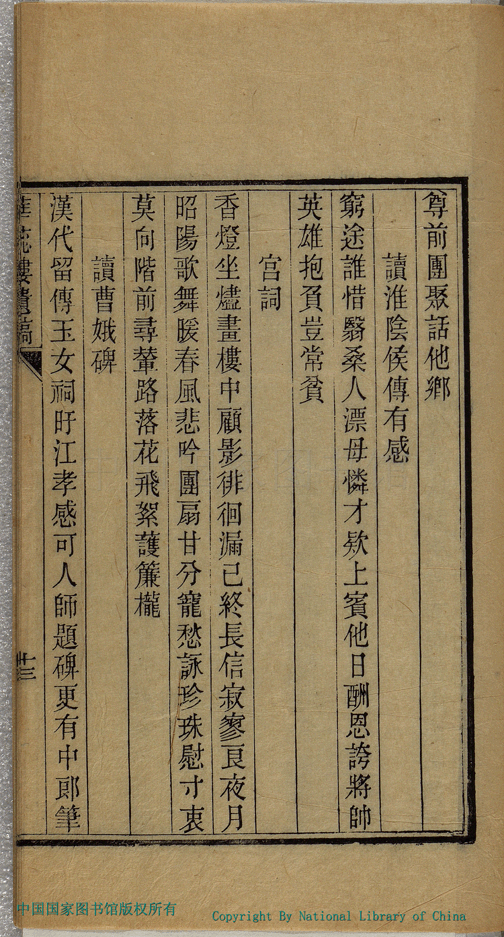 尊前團聚話他鄉
讀淮陰侯傳有感
窮途誰惜翳桑人漂母憐才欵上賓他日酬恩誇將帥
英雄抱負豈常貧
宮詞
香燈坐燼畫樓中顧影徘徊漏已終長信寂寥良夜月
昭陽歌舞暖春風悲吟團扇甘分寵愁詠珍珠慰寸衷
莫向階前尋輦路落花飛絮護簾櫳
讀曹娥碑
漢代留傳玉女祠旴江孝感可人師題碑更有中郎筆
樓遺稿
十三
中国国家图书馆版权所有
Copyright By National Library of China